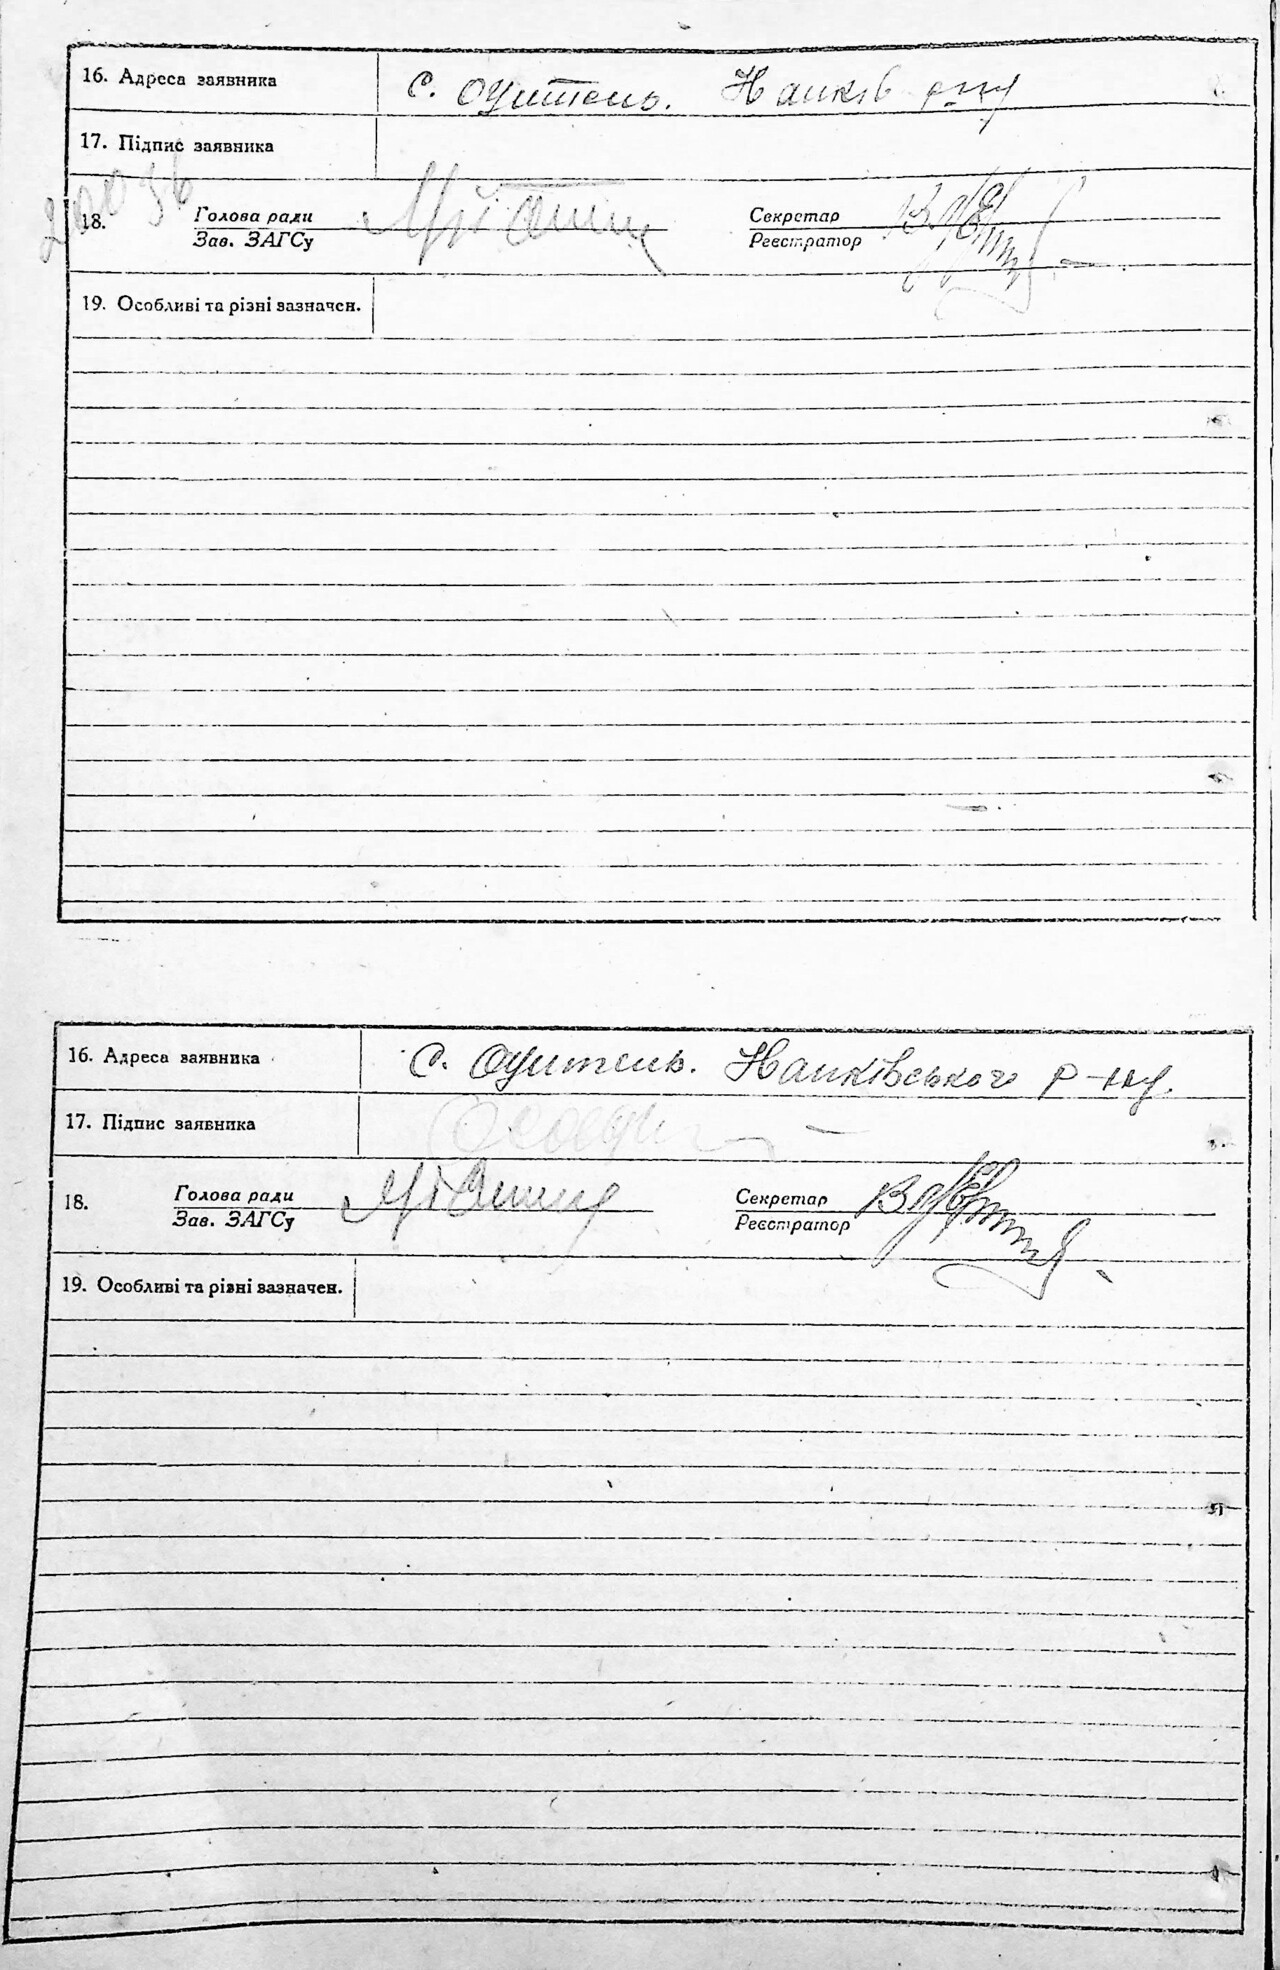 16. Адреса заявника с. Оцитель. Нанків р-ну
17. Підпис заявника
18. Голова ради Секретар
Зав. ЗАГСу Реєстратор
19. Особливі та різні зазначен.
16. Адреса заявника с. Оцитель. Нанківського р-ну.
17. Підпис заявника
18. Голова ради Секретар
Зав. ЗАГСу Реєстратор
19. Особливі та різні зазначен.